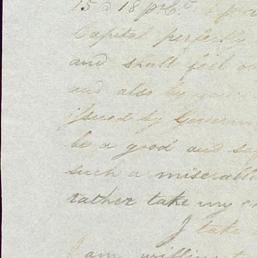 15 a 18 pr Ct. a
Capital perfectly
and shall feel
and also by
issued by Govern
be a good and
such a miserabl
rather take my
I take
I am willing t